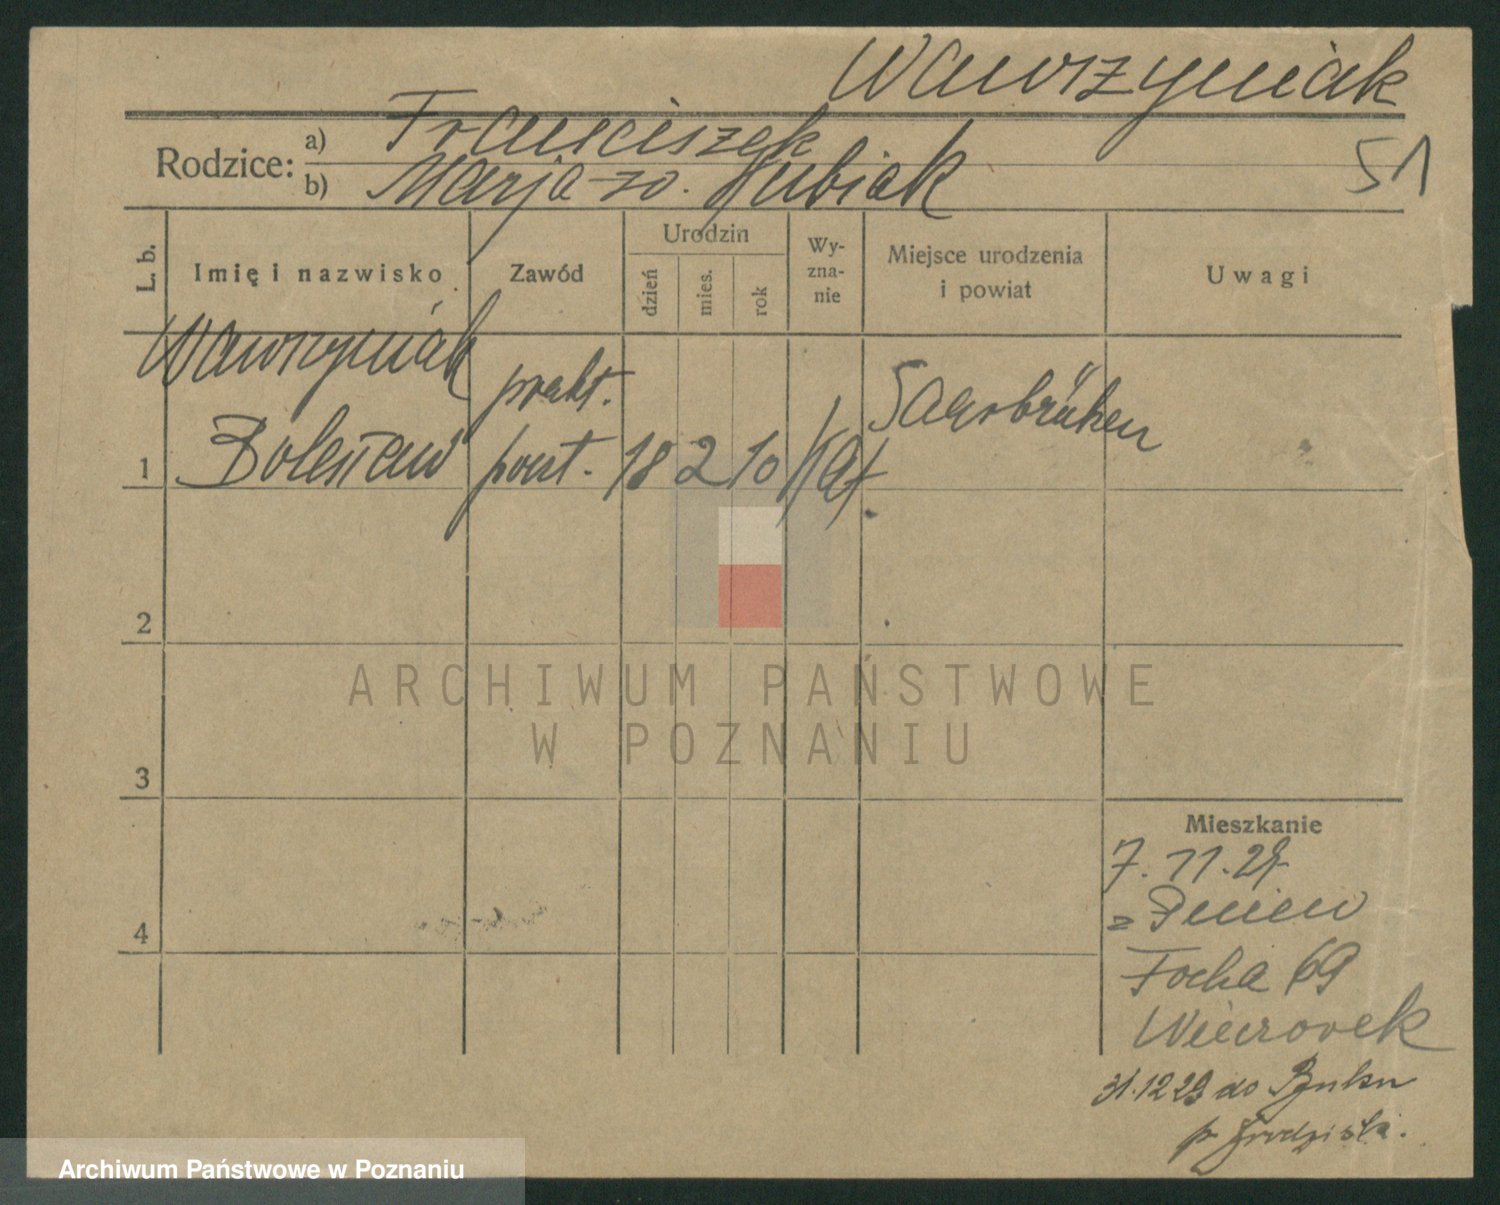 Wawrzyniak
Rodzice: a) Franciszek
b) Marja zo. Kubiak
51
L. b.
Imię i nazwisko
Zawód
Urodzin
dzień
mies.
rok
Wy-
zna-
nie
Miejsce urodzenia
i powiat
Uwagi
Wawrzyniak prakt. Saarbrüken
1 Bolesław poczt. 18 2 10 Kat
2
ARCHIWUM PAŃSTWOWE
W POZNANIU
3
Mieszkanie
7. 11. 29
z Pniew
4
Focha 69
Wieczorek
31.12 29 do Buku
p. Grodziska.
Archiwum Państwowe w Poznaniu